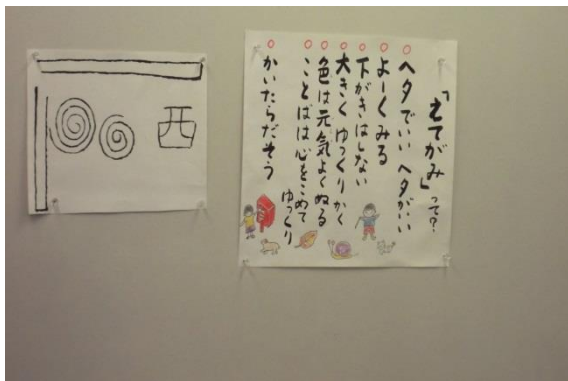 「えてがみ」って?
○ヘタでいい ヘタがいい
○よーくみる
○下がきはしない
○大きく ゆっくりかく
○色は元気よくぬる
○ことばは心をこめて
ゆっくり
○かいたらだそう
西